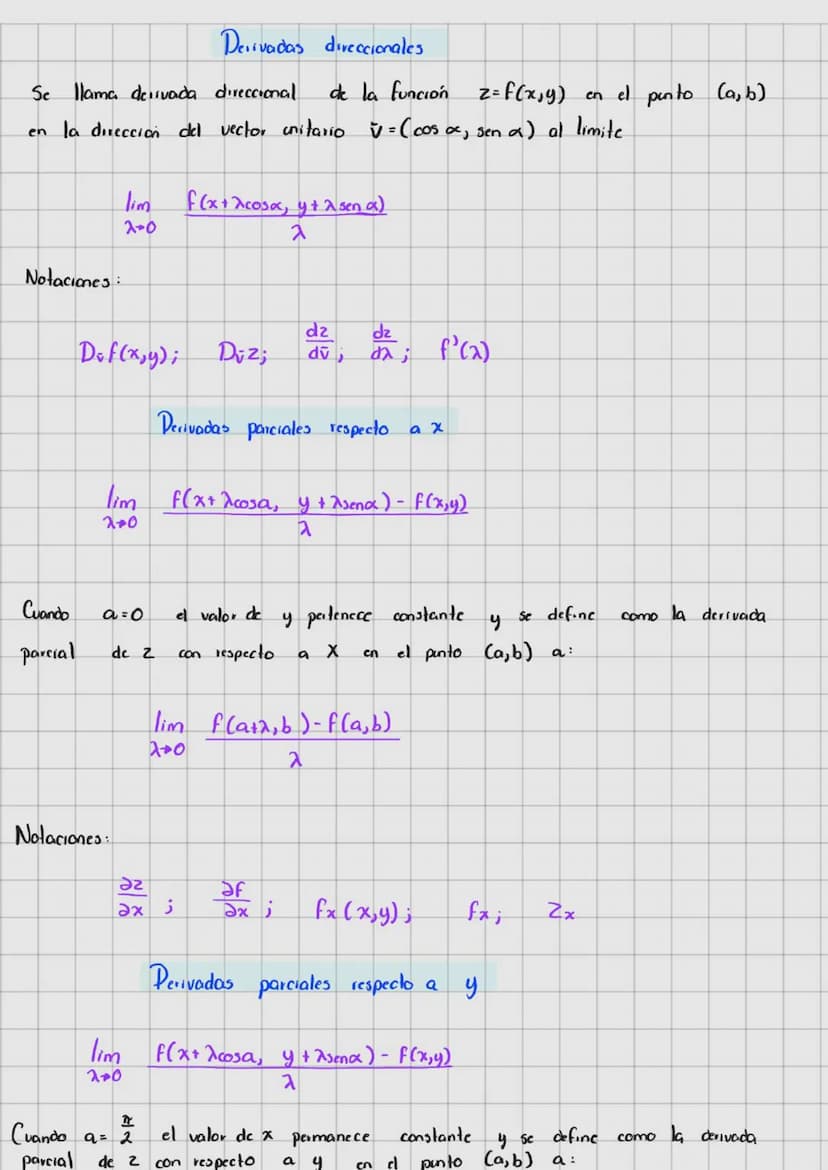 Derivadas direccionales
Se llama derivada direccional de la función z=f(x,y) en el punto (a,b)
en la dirección del vector unitario v̄=(cos α, sen α) al limite
lim f(x+λcosα, y+λ sen α)
λ→0 λ
Notaciones:
Dv̄f(x,y); Dv̄z; dz/dv̄; dz/dλ; f'(λ)
Derivadas parciales respecto a x
lim f(x+λcosa, y+λsenα)-f(x,y)
λ→0 λ
Cuando a=0 el valor de y pertenece constante y se define como la derivada
parcial de z con respecto a X en el punto (a,b) a:
lim f(a+λ,b)-f(a,b)
λ→0 λ
Notaciones:
∂z/∂x; ∂f/∂x; fx(x,y); fx; Zx
Derivadas parciales respecto a y
lim f(x+λcosa, y+λsenα)-f(x,y)
λ→0 λ
Cuando a=π/2 el valor de x permanece constante y se define como la derivada
parcial de z con respecto a y en el punto (a,b) a: